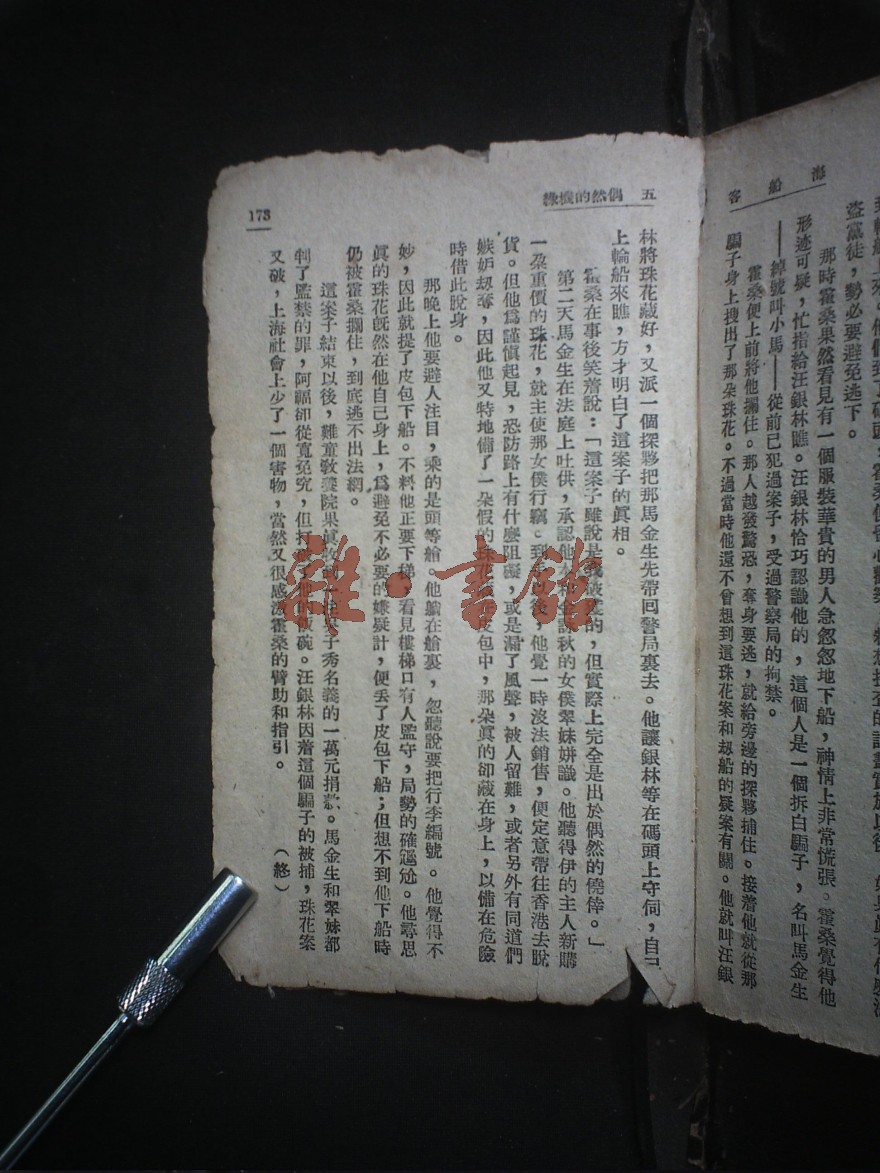 海船客
盜黨徒，勢必要避免逃下。
那時霍桑果然看見有一個服裝華貴的男人急忽忽地下船，神情上非常慌張。霍桑覺得他
形迹可疑，忙指給汪銀林瞧。汪銀林恰巧認識他的，這個人是一個拆白騙子，名叫馬金生
——綽號叫小馬——從前已犯過案子，受過警察局的拘禁。
霍桑便上前將他攔住。那人越發驚恐，奪身要逃，就給旁邊的探夥捕住。接着他就從那
騙子身上搜出了那朵珠花。不過當時他還不曾想到這珠花案和刼船的疑案有關。他就叫汪銀
五 偶然的機緣
林將珠花藏好，又派一個探夥把那馬金生先帶回警局裏去。他讓銀林等在碼頭上守伺，自己
上輪船來瞧，方才明白了這案子的眞相。
霍桑在事後笑着說：「這案子雖說是我破獲的，但實際上完全是出於偶然的僥倖。」
第二天馬金生在法庭上吐供，承認他秋的女僕翠妹姘識。他聽得伊的主人新購
一朶重價的珠花，就主使那女僕行竊。到手以後，他覺一時沒法銷售，便定意帶往香港去脫
貨。但他爲謹愼起見，恐防路上有什麼阻礙，或是漏了風聲，被人留難，或者另外有同道們
嫉妬刼奪，因此他又特地備了一朵假的珠花皮包中，那朵眞的卻藏在身上，以備在危險
時借此脫身。
那晚上他要避人注目，乘的是頭等艙。他躺在艙裏，忽聽說要把行李編號。他覺得不
妙，因此就提了皮包下船。不料他正要下梯，看見樓梯口有人監守，局勢的確尷尬。他尋思
眞的珠花旣然在他自己身上，爲避免不必要的嫌疑計，便丟了皮包下船；但想不到他下船時
仍被霍桑攔住，到底逃不出法網。
這案子結束以後，難童敎養院果眞收子秀名義的一萬元捐款。馬金生和翠妹都
判了監禁的罪，阿福卻從寬免究，但打了他的飯碗。汪銀林因着這個騙子的被捕，珠花案
又破，上海社會上少了一個害物，當然又很感激霍桑的臂助和指引。
（終）
173
雜·書館